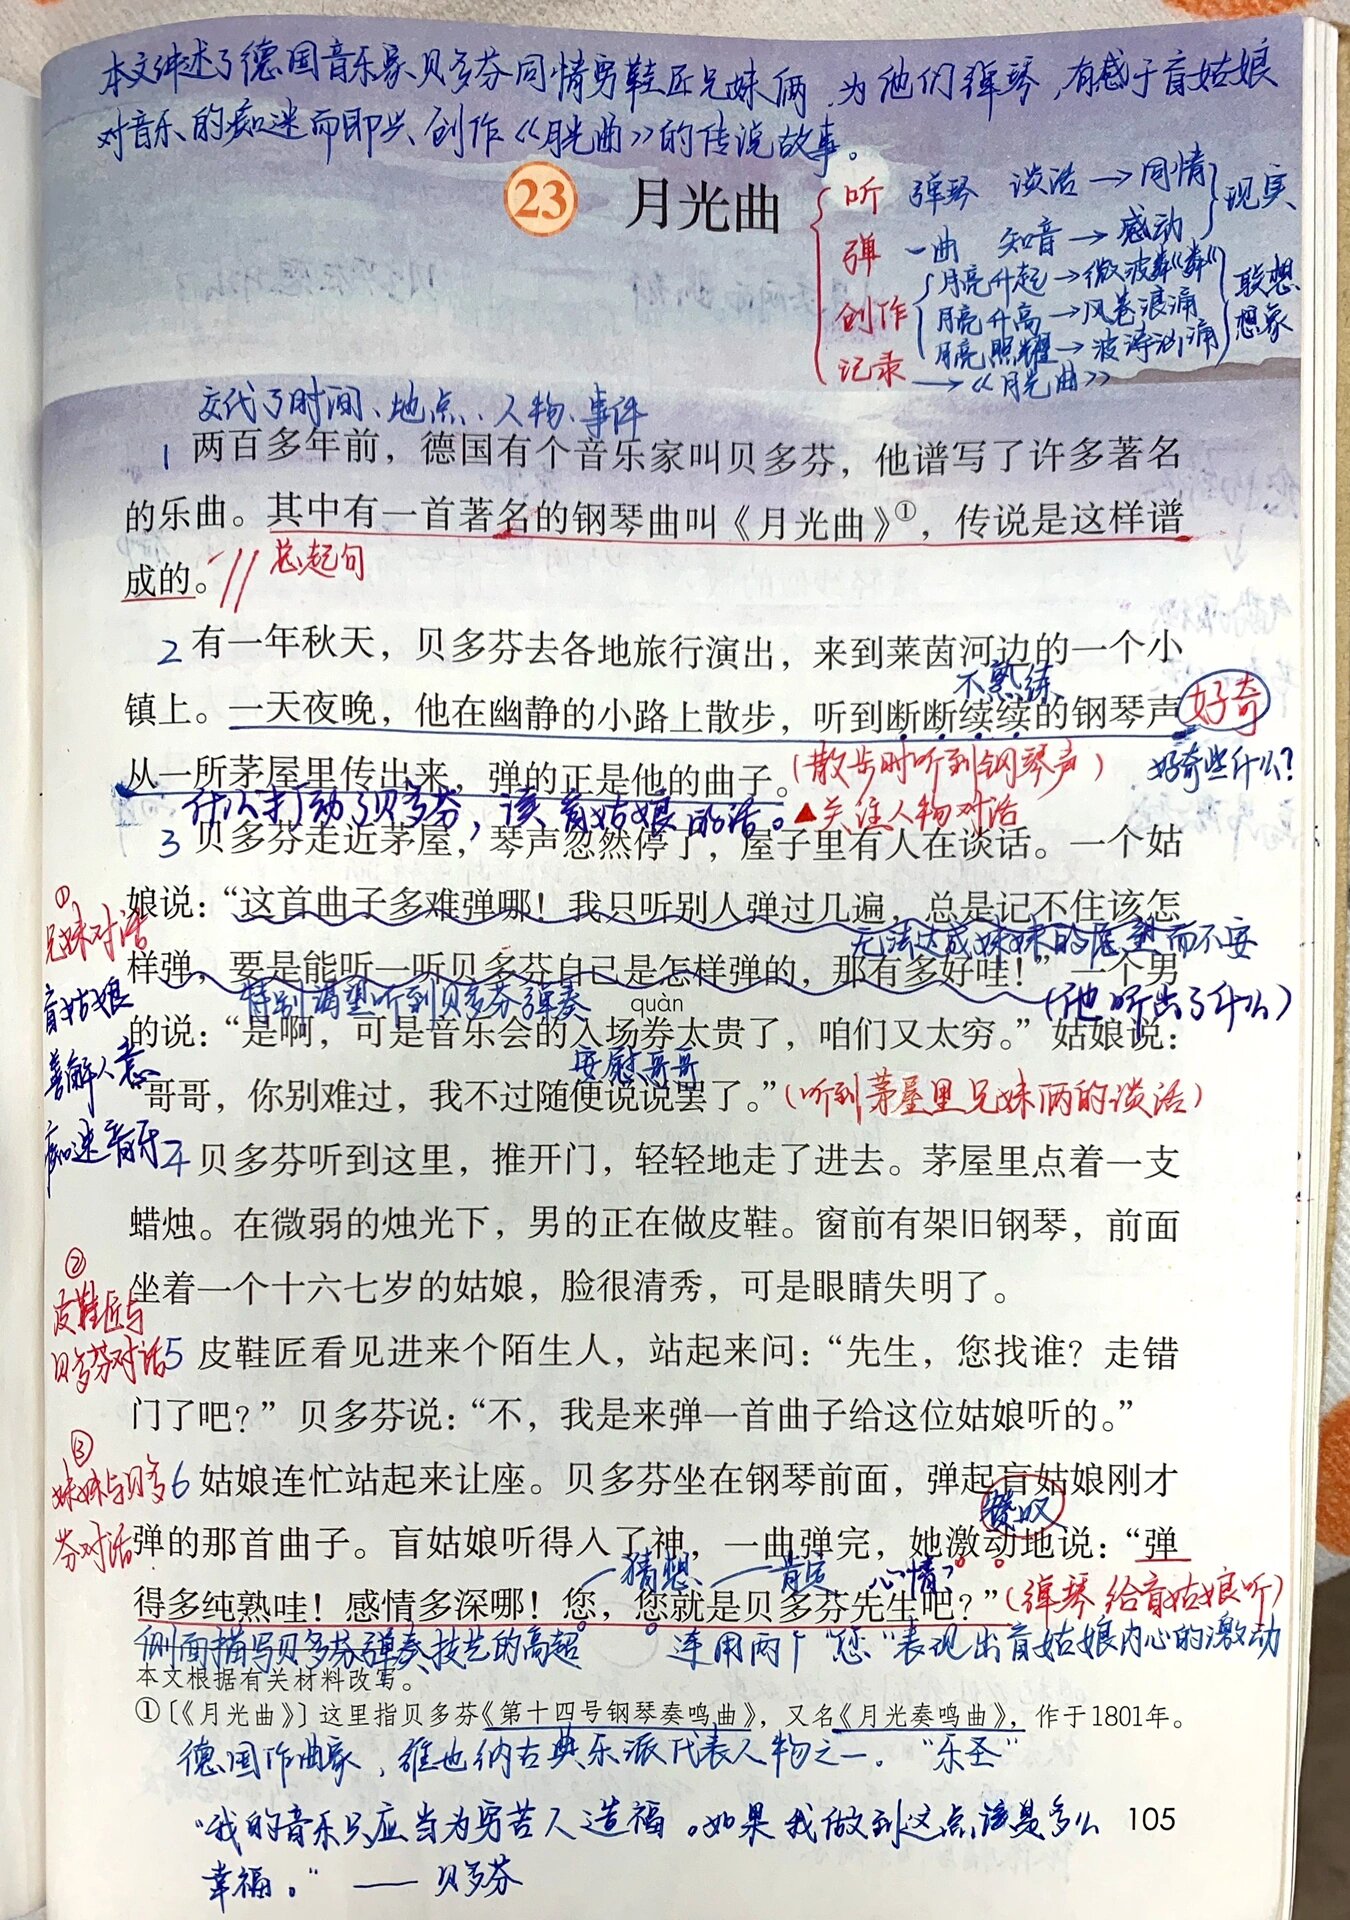 本文讲述了德国音乐家贝多芬同情穷鞋匠兄妹俩，为他们弹琴，有感于盲姑娘
对音乐的痴迷而即兴创作《月光曲》的传说故事。
23 月光曲
听 弹琴 谈话→同情
弹 一曲 知音→感动
现实
创作
月亮升起→微波粼粼
月亮升高→风卷浪涌
月亮照耀→波涛汹涌
联想
想象
记录→《月光曲》
交代了时间、地点、人物、事件
1 两百多年前，德国有个音乐家叫贝多芬，他谱写了许多著名
的乐曲。其中有一首著名的钢琴曲叫《月光曲》①，传说是这样谱
成的。// 总起句
2 有一年秋天，贝多芬去各地旅行演出，来到莱茵河边的一个小
不熟练
镇上。一天夜晚，他在幽静的小路上散步，听到断断续续的钢琴声
好奇
好奇些什么？
从一所茅屋里传出来，弹的正是他的曲子。(散步时听到钢琴声)
什么打动了贝多芬，读盲姑娘的话。▲关注人物对话
3 贝多芬走近茅屋，琴声忽然停了，屋子里有人在谈话。一个姑
①
兄妹对话
娘说：“这首曲子多难弹哪！我只听别人弹过几遍，总是记不住该怎
无法达成妹妹的愿望而不安
样弹，要是能听一听贝多芬自己是怎样弹的，那有多好哇！”一个男
特别渴望听到贝多芬弹奏
quàn
(他听出了什么)
盲姑娘
善解人意
痴迷音乐
的说：“是啊，可是音乐会的入场券太贵了，咱们又太穷。”姑娘说：
安慰哥哥
“哥哥，你别难过，我不过随便说说罢了。”(听到茅屋里兄妹俩的谈话)
4 贝多芬听到这里，推开门，轻轻地走了进去。茅屋里点着一支
蜡烛。在微弱的烛光下，男的正在做皮鞋。窗前有架旧钢琴，前面
坐着一个十六七岁的姑娘，脸很清秀，可是眼睛失明了。
②
皮鞋匠与
贝多芬对话
5 皮鞋匠看见进来个陌生人，站起来问：“先生，您找谁？走错
门了吧？”贝多芬说：“不，我是来弹一首曲子给这位姑娘听的。”
③
妹妹与贝多
芬对话
6 姑娘连忙站起来让座。贝多芬坐在钢琴前面，弹起盲姑娘刚才
赞叹
弹的那首曲子。盲姑娘听得入了神，一曲弹完，她激动地说：“弹
猜想 肯定 心情
得多纯熟哇！感情多深哪！您，您就是贝多芬先生吧？”(弹琴给盲姑娘听)
侧面描写贝多芬弹奏技艺的高超 连用两个“您”表现出盲姑娘内心的激动
本文根据有关材料改写。
①〔《月光曲》〕这里指贝多芬《第十四号钢琴奏鸣曲》，又名《月光奏鸣曲》，作于1801年。
德国作曲家，维也纳古典乐派代表人物之一。“乐圣”
“我的音乐只应当为穷苦人造福。如果我做到这点，该是多么
幸福。”——贝多芬
105